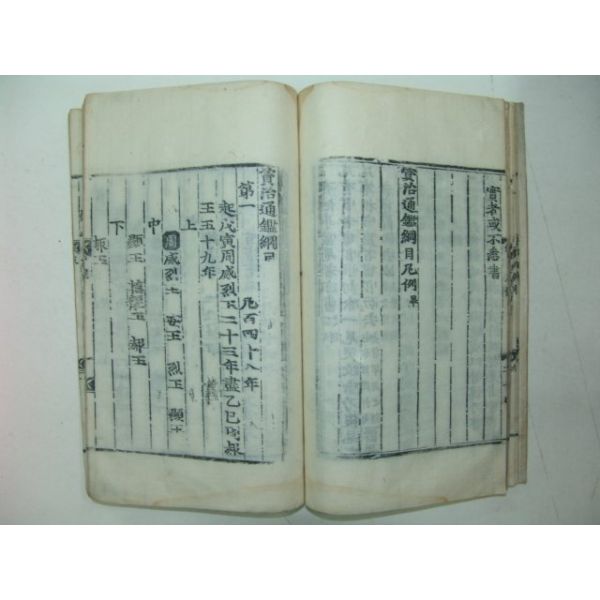 實者或不悉書
資治通鑑綱目凡例畢
資治通鑑綱目
第一
起戊寅周威烈王二十三年盡乙巳周赧
王五十九年
凡百四十八年
上
周威烈王 安王 烈王 顯王
中
顯王 愼靚王 赧王
下
赧王